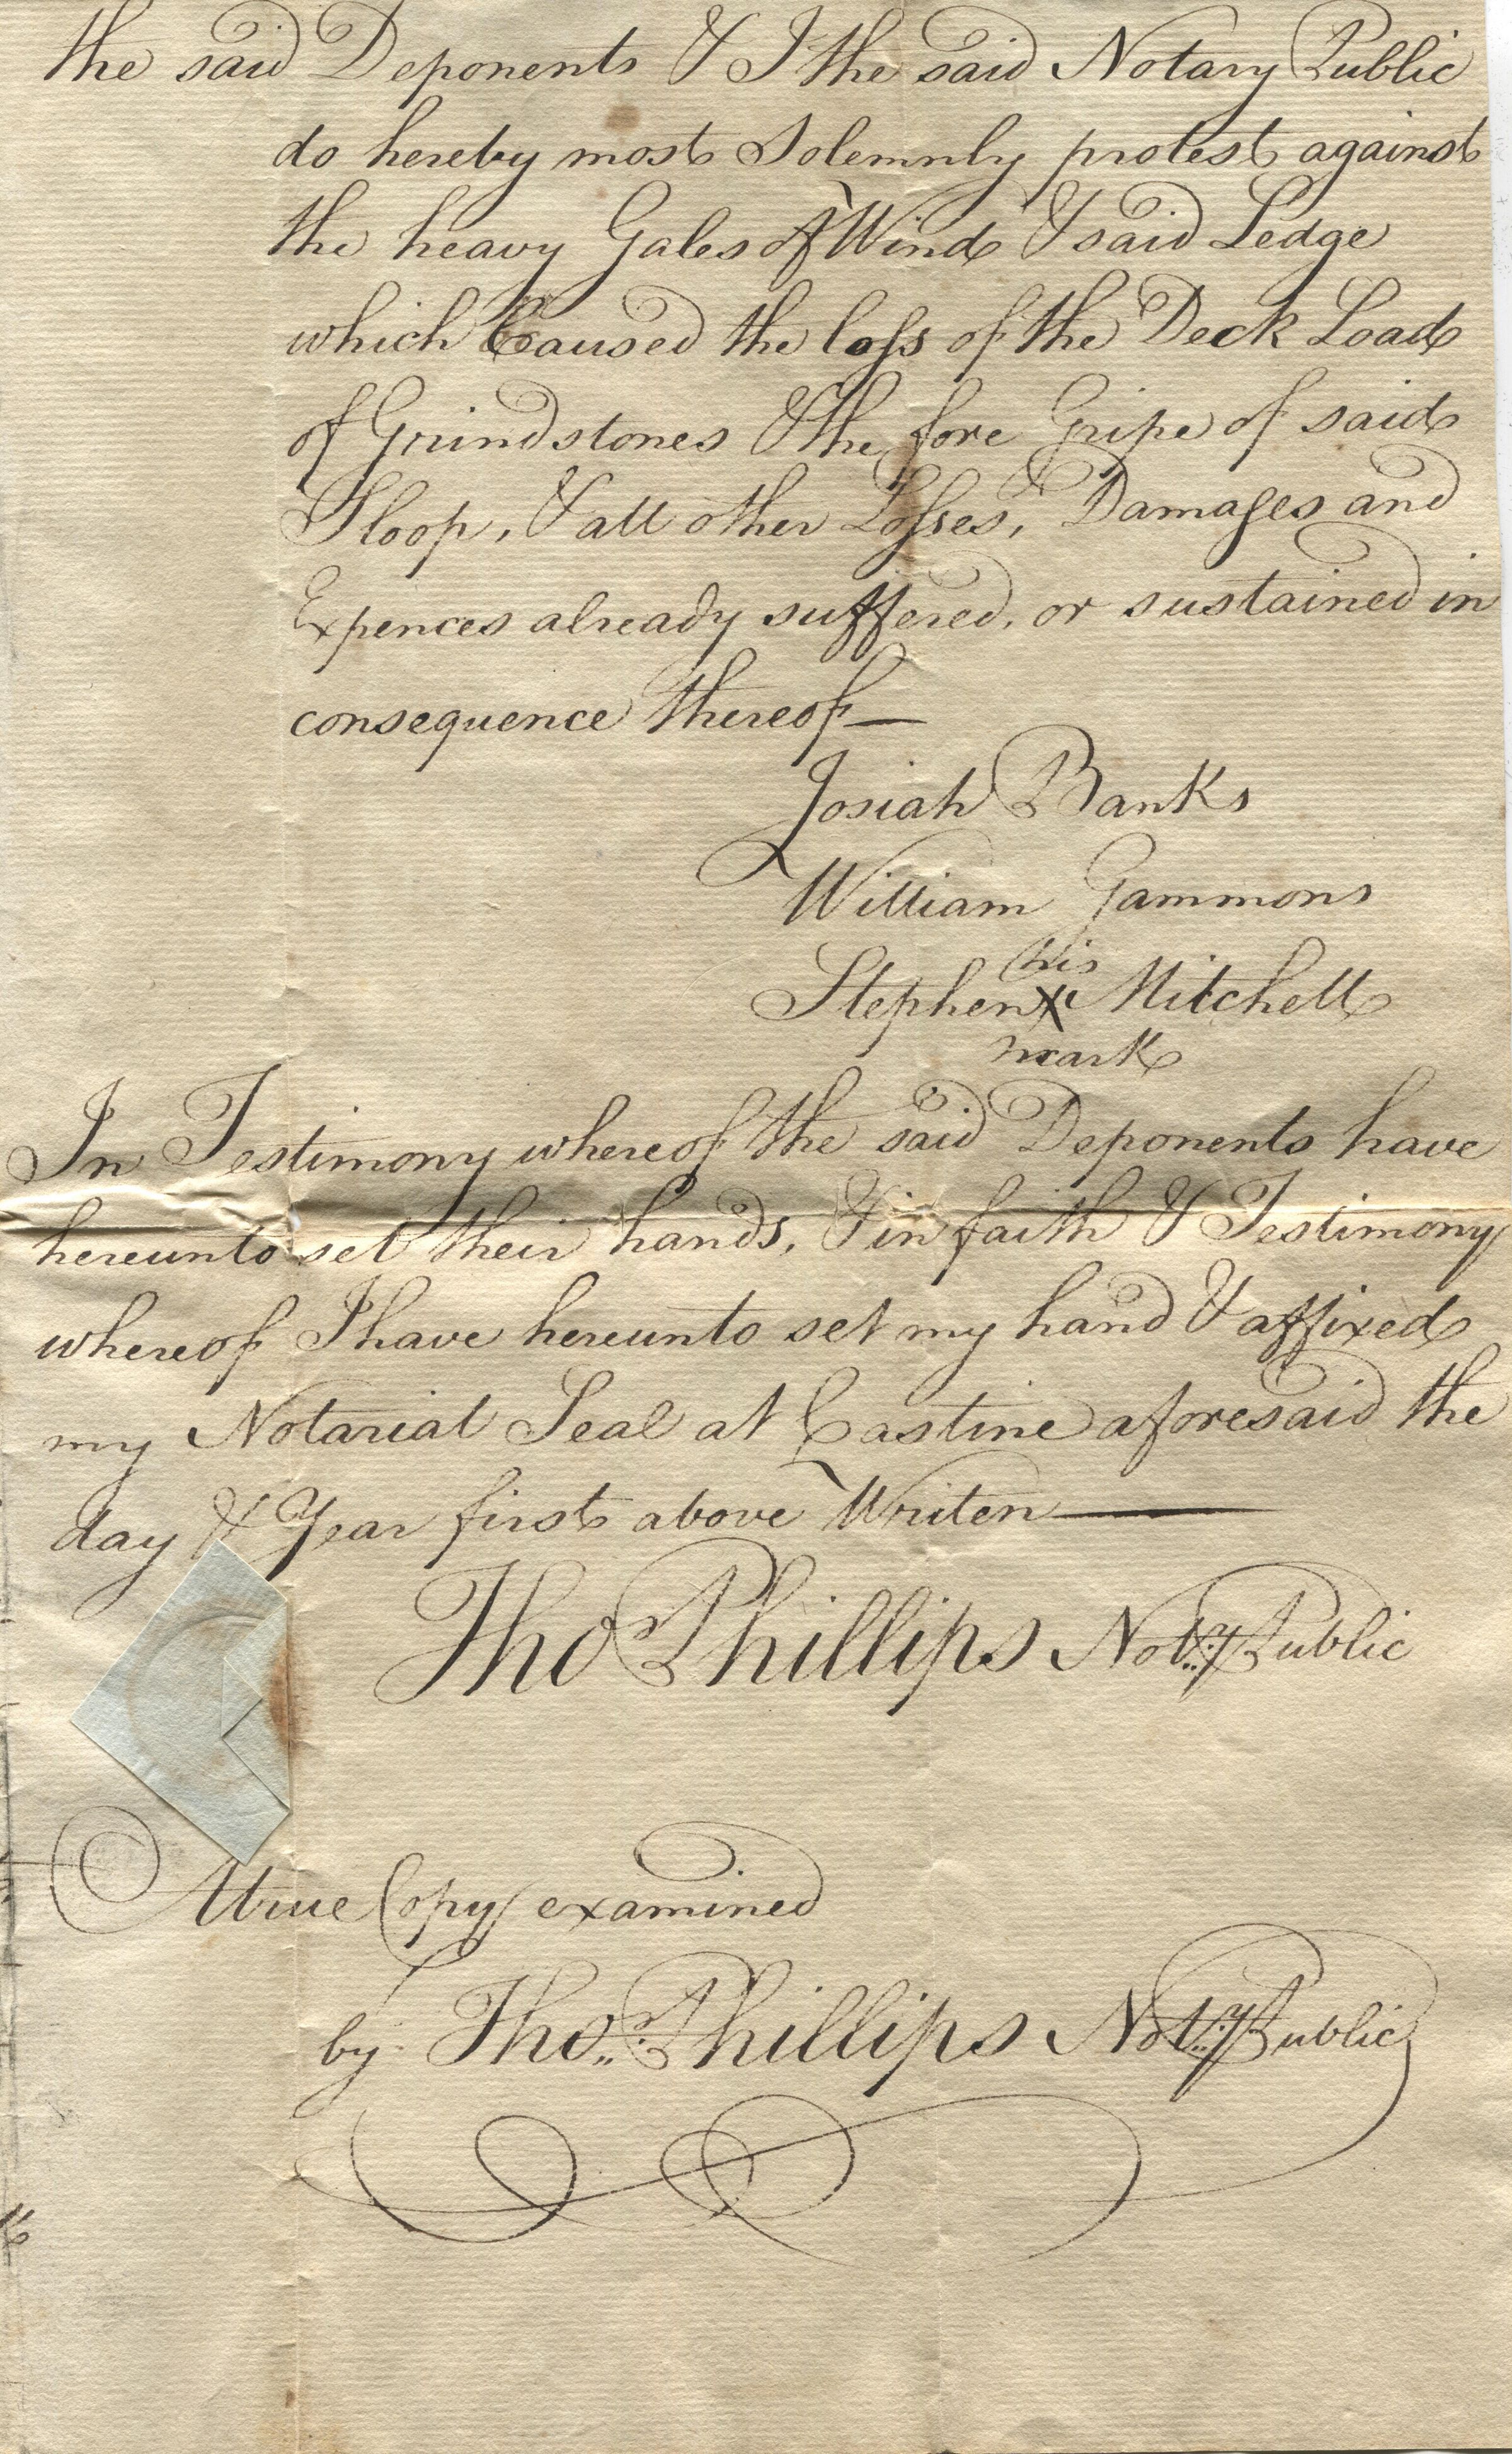 the said Deponents & I the said Notary Public
do hereby most Solemnly protest against
the heavy Gales of Wind & said Ledge
which Caused the loſs of the Deck Load
of Grindstones & the fore Gripe of said
Sloop, & all other Loſses, Damages and
Expences already suffered, or sustained in
consequence thereof—
Josiah Banks
William Gammons
his
Stephen X Mitchell
mark
In Testimony whereof the said Deponents have
hereunto set their hands, & in faith & Testimony
whereof I have hereunto set my hand & affixed
my Notarial Seal at Castine aforesaid the
day & Year first above Writen—
Thos Phillips Noty Public
A true Copy examined
by Thos Phillips Noty Public